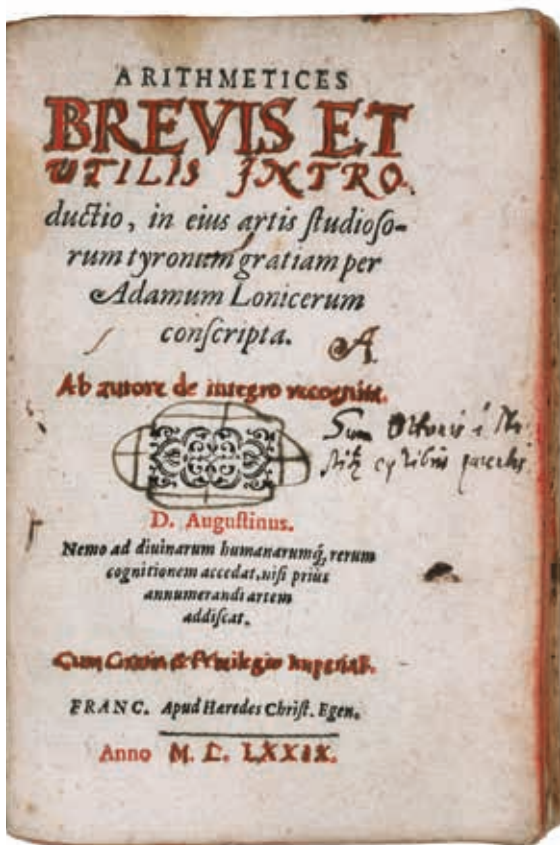 ARITHMETICES
BREVIS ET
UTILIS INTRO
ductio, in eius artis studioso-
rum tyronum gratiam per
Adamum Lonicerum
conscripta.
A
Ab autore de integro recognita.
Sum
D. Augustinus.
Nemo ad diuinarum humanarumq́, rerum
cognitionem accedat, nisi prius
annumerandi artem
addiscat.
Cum Gratia & Priuilegio Imperiali.
FRANC. Apud Haredes Christ. Egen.
Anno M. D. LXXIX.